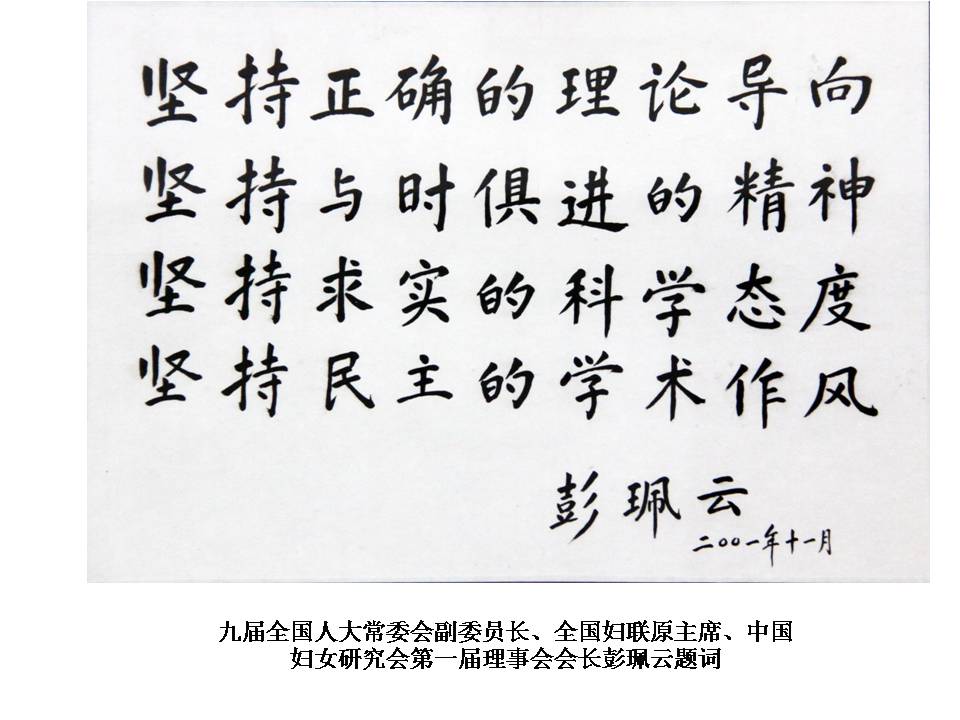 坚持正确的理论导向
坚持与时俱进的精神
坚持求实的科学态度
坚持民主的学术作风
彭珮云
二〇〇一年十一月
九届全国人大常委会副委员长、全国妇联原主席、中国
妇女研究会第一届理事会会长彭珮云题词